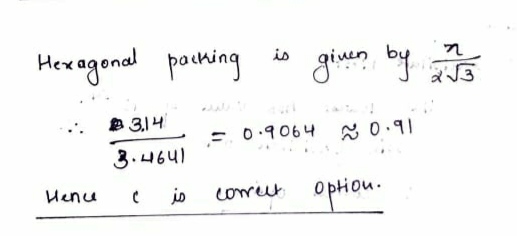 Hexagonal packing is given by π/2√3
∴ 3.14/3.4641 = 0.9064 ≈ 0.91
Hence c is correct option.